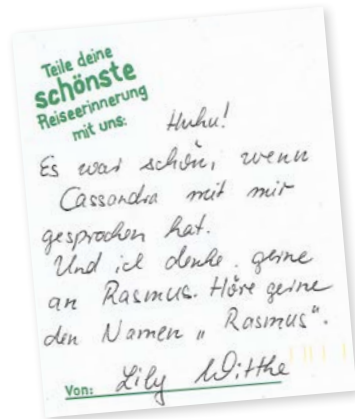 Teile deine
schönste
Reiseerinnerung
mit uns:
Huhu!
Es war schön, wenn
Cassandra mit mir
gesprochen hat.
Und ich denke gerne
an Rasmus. Höre gerne
den Namen „Rasmus“.
Von: Lily Witthe